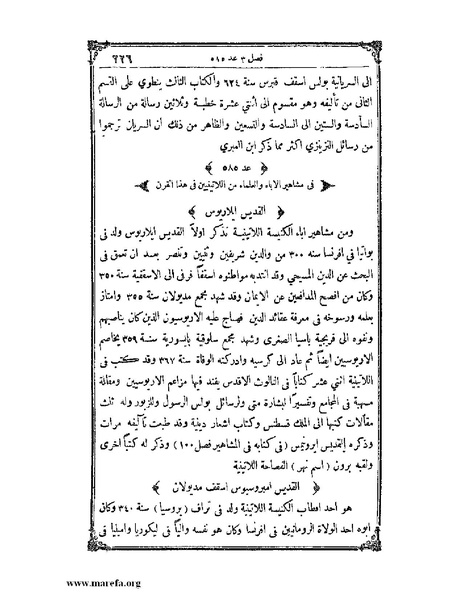 فصل ٣ عد ٥١٥
٢٢٦
الى السريانية بولس اسقف قبرس سنة ٦٢٤ والكتاب الثالث ينطوي على القسم
الثاني من تأليفه وهو مقسوم الى اثنتي عشرة خطبة وثلاثين رسالة من الرسالة
السادسة والستين الى السادسة والتسعين والظاهر من ذلك ان السريان ترجموا
من رسائل النزينزي اكثر مما ذكر ابن العبري
﴿ عد ٥٨٥ ﴾
﴿ في مشاهير الاباء والعلماء من اللاتينيين في هذا القرن ﴾
﴿ القديس ايلاريوس ﴾
ومن مشاهير اباء الكنيسة اللاتينية نذكر اولاً القديس ايلاريوس ولد في
بواتيا في افرنسا سنة ٣٠٠ من والدين شريفين وثنيين وتنصر بعد ان تعمق في
البحث عن الدين المسيحي وقد انتدبه مواطنوه اسقفاً فرقى الى الاسقفية سنة ٣٥٠
وكان من افصح المدافعين عن الايمان وقد شهد مجمع مديولان سنة ٣٥٥ وامتاز
بعلمه ورسوخه في معرفة عقائد الدين فهاج عليه الاريوسيون الذين كان يناصبهم
ونفوه الى فريجية باسيا الصغرى وشهد مجمع سلوقية بايسورية سنة ٣٥٩ يخاصم
الاريوسيين ايضاً ثم عاد الى كرسيه وادركته الوفاة سنة ٣٦٧ وقد كتب في
اللاتينية اثني عشر كتاباً في الثالوث الاقدس يفند فيها مزاعم الاريوسيين ومقالة
مسهبة في المجامع وتفسيراً لبشارة متى ولرسائل بولس الرسول وللزبور وله ثلث
مقالات كتبها الى الملك قسطنس وكتاب اشعار دينية وقد طبعت تآليفه مرات
وذكره القديس ايرونيمس ( في كتابه في المشاهير فصل ١٠٠ ) وذكر له كتباً اخرى
ولقبه برون ( اسم نهر ) الفصاحة اللاتينية
﴿ القديس امبروسيوس اسقف مديولان ﴾
هو احد اقطاب الكنيسة اللاتينية ولد في تراف ( بروسيا ) سنة ٣٤٠ وكان
ابوه احد الولاة الرومانيين في افرنسا وكان هو نفسه والياً في ليكوريا واميليا في
www.marefa.org